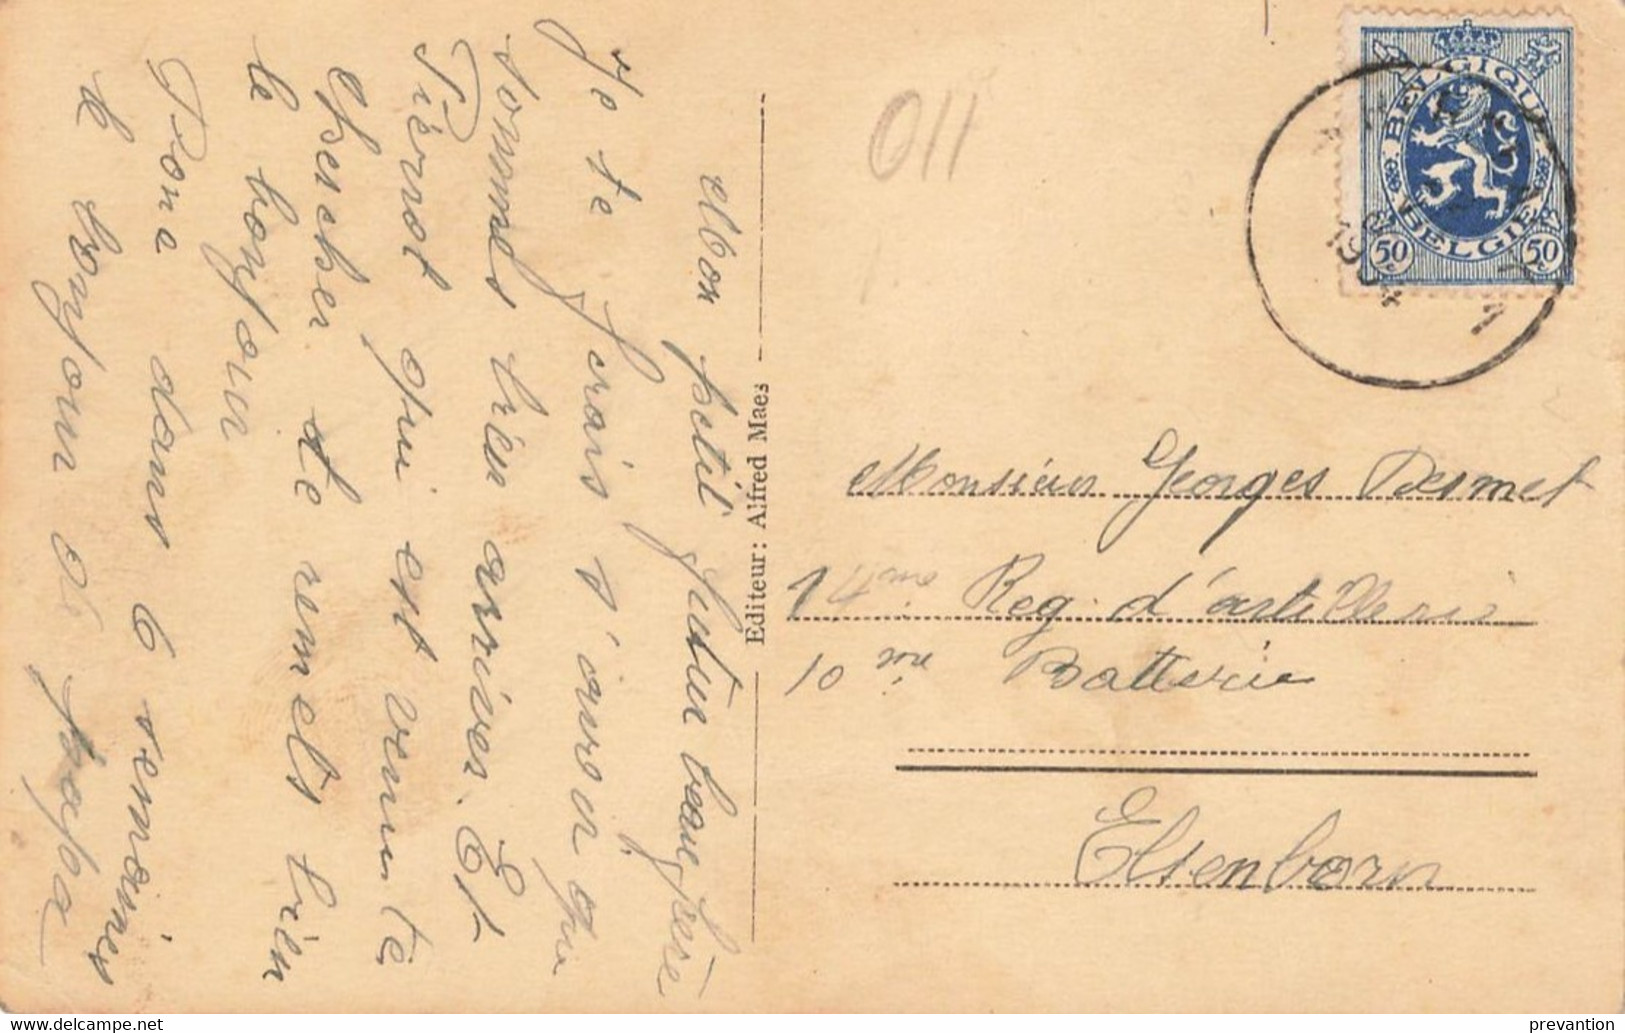 Mon petit futur beau, frère
Je te ferais s'avoir que
sommes bien arriver. Et
Piérot qui est venu te
chercher te remets bien
le bonjour
dans 6 semaines
le bonjour de papa
Editeur: Alfred Maes
011
BELGIQUE
BELGIE
50 c
50 c
Monsieur Georges Desmet
14eme Reg. d'artillerie
10 me Batterie
Elsenborn
prevantion